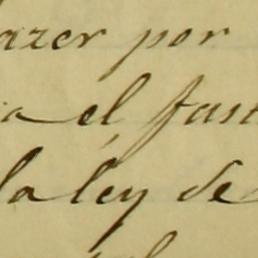 azer por
a el fust
la ley de